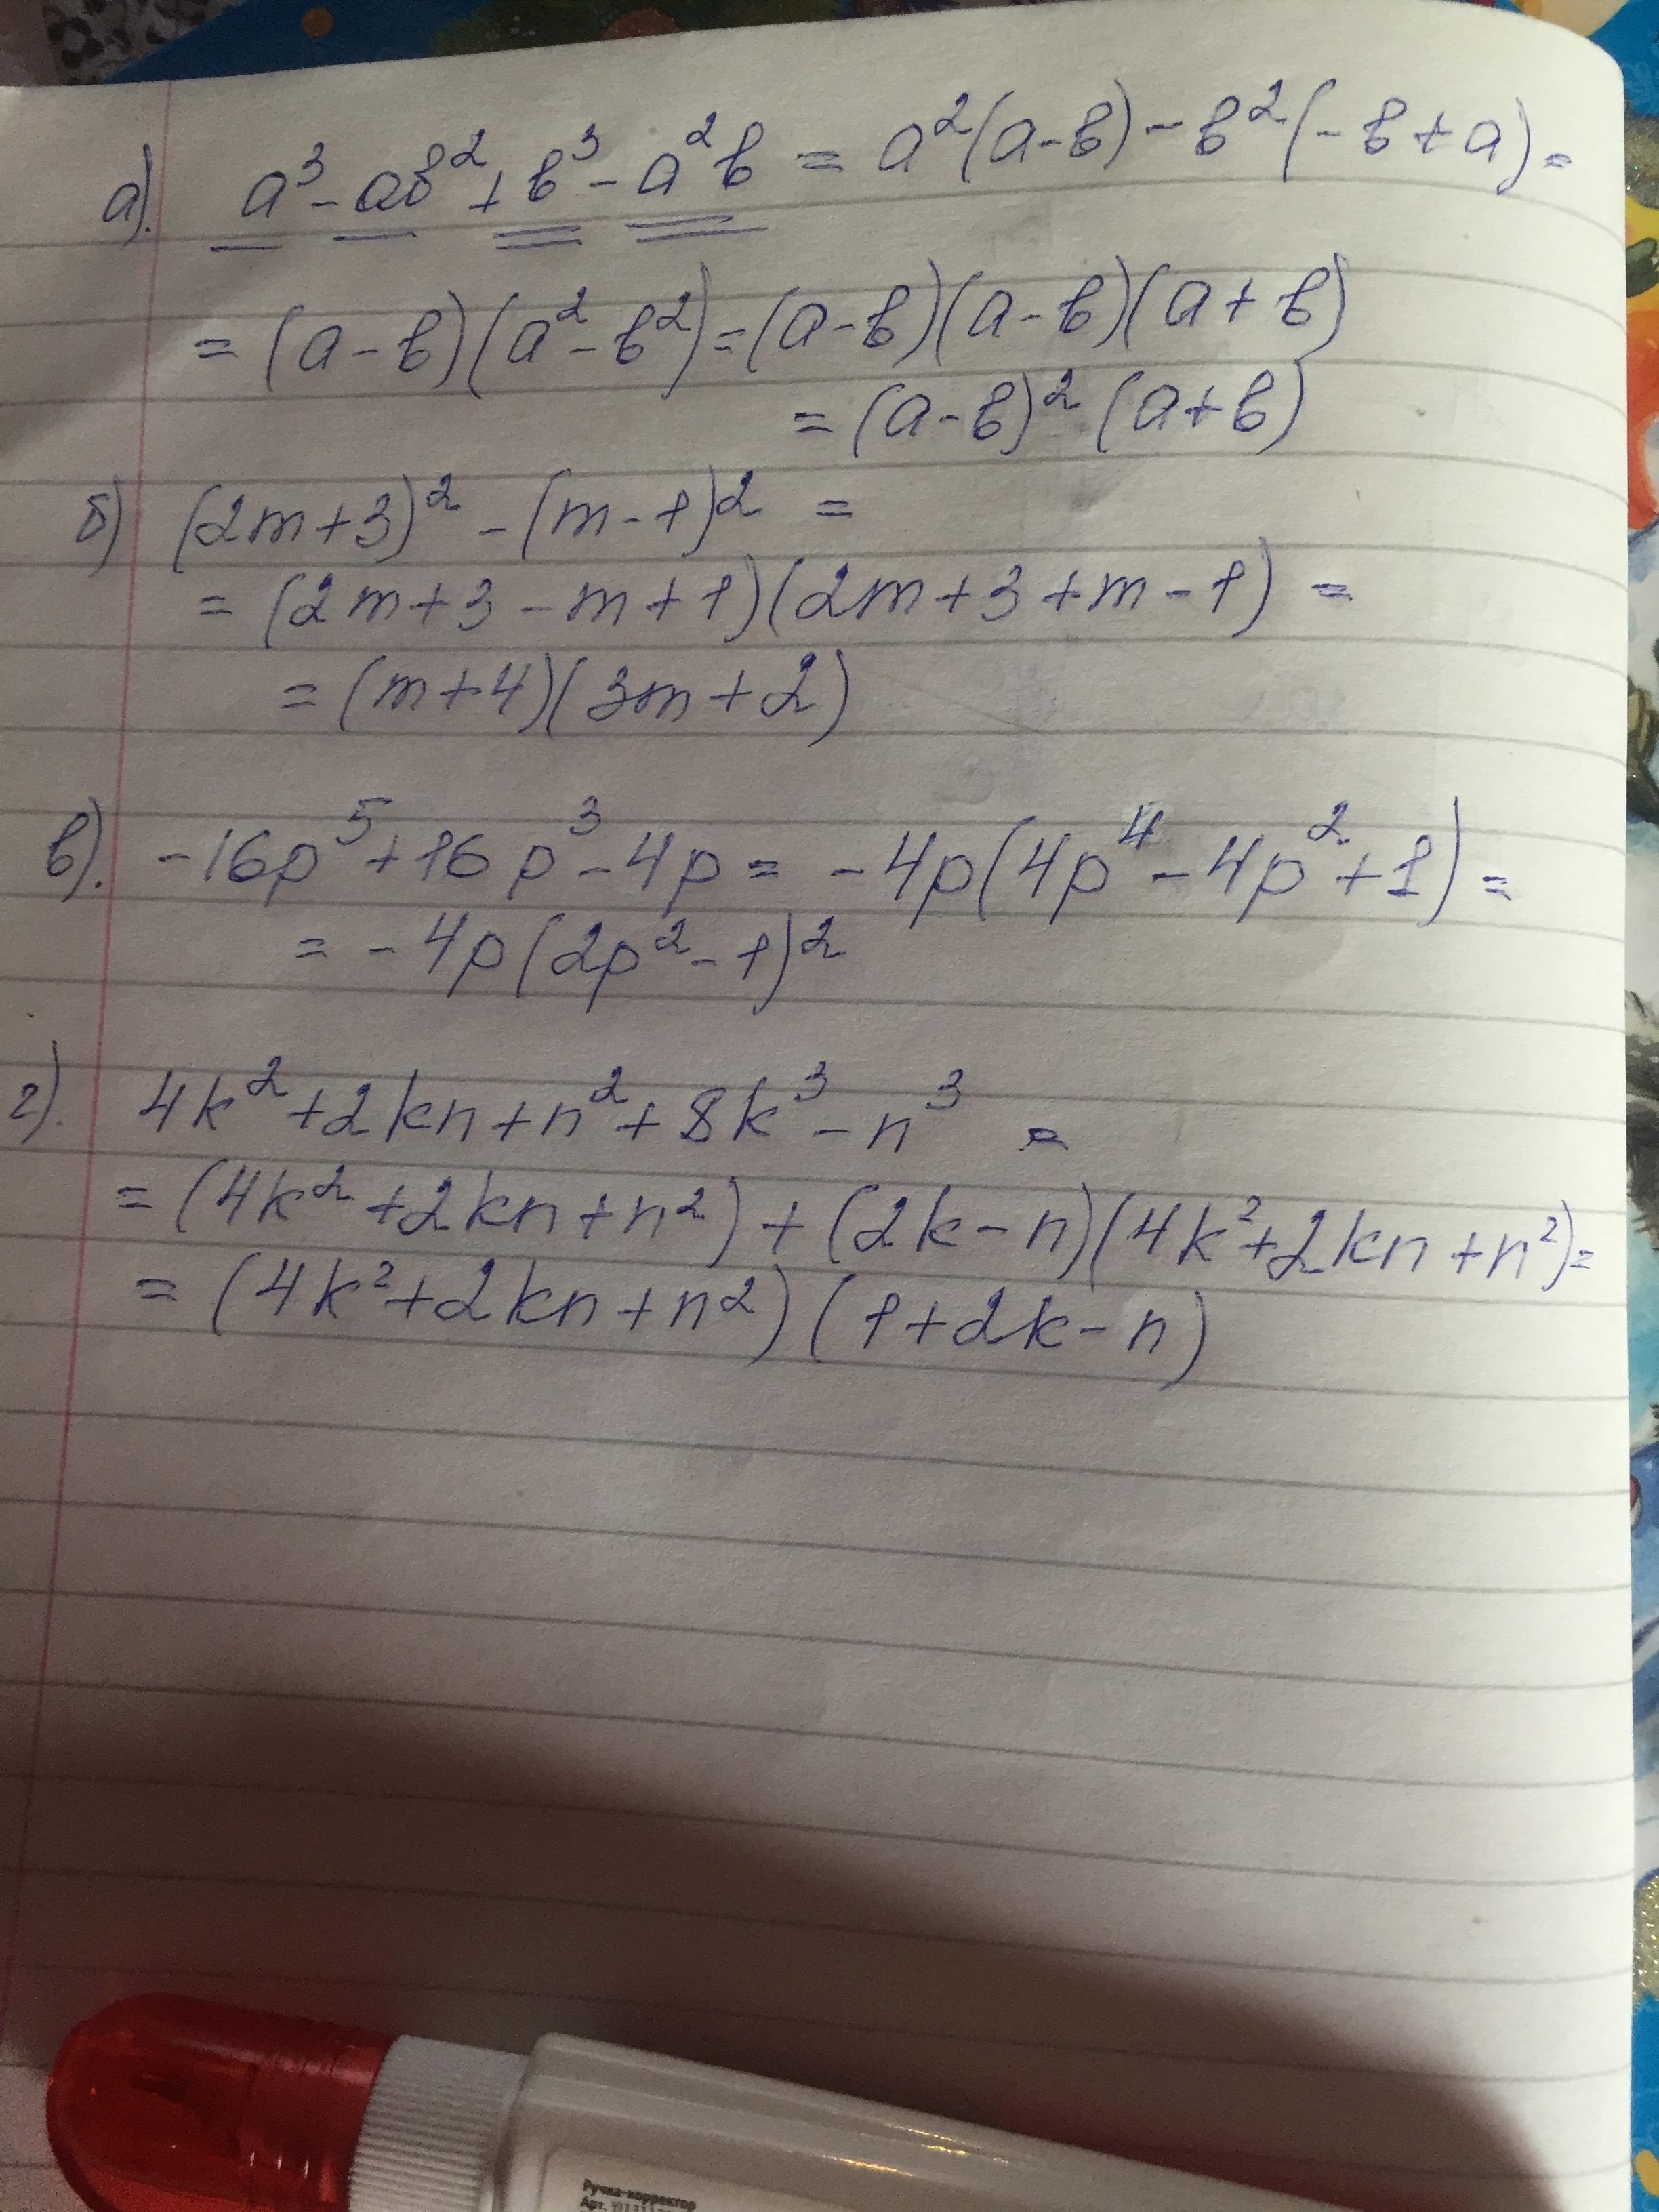 а). a³ - ab² + b³ - a²b = a²(a-b) - b²(-b+a) =
= (a-b)(a² - b²) = (a-b)(a-b)(a+b)
= (a-b)² (a+b)
б) (2m+3)² - (m-1)² =
= (2m+3-m+1)(2m+3+m-1) =
= (m+4)(3m+2)
в). -16p⁵ + 16p³ - 4p = -4p(4p⁴ - 4p² + 1) =
= -4p(2p² - 1)²
г). 4k² + 2kn + n² + 8k³ - n³ =
= (4k² + 2kn + n²) + (2k - n)(4k² + 2kn + n²) =
= (4k² + 2kn + n²)(1 + 2k - n)
Ручка-корректор
Арт.